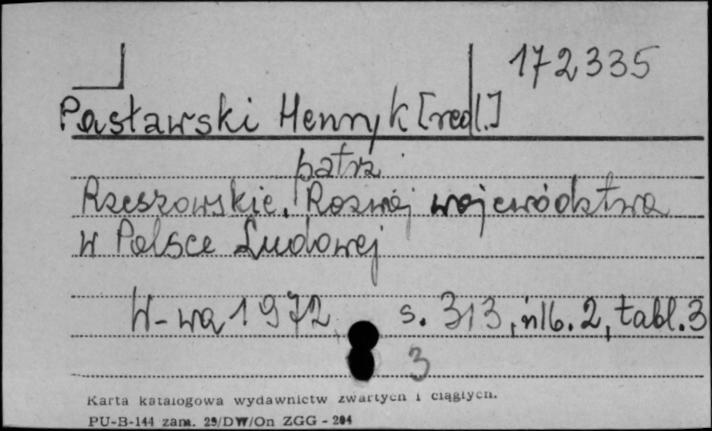 172335
Pasławski Henryk [red.]
patrz
Rzeszowskie. Rozwój województwa
w Polsce Ludowej
W-wa 1972, s. 313, nlb. 2, tabl. 3
3
Karta katalogowa wydawnictw zwartych i ciągłych.
PU-B-144 zam. 29/DW/On ZGG - 204